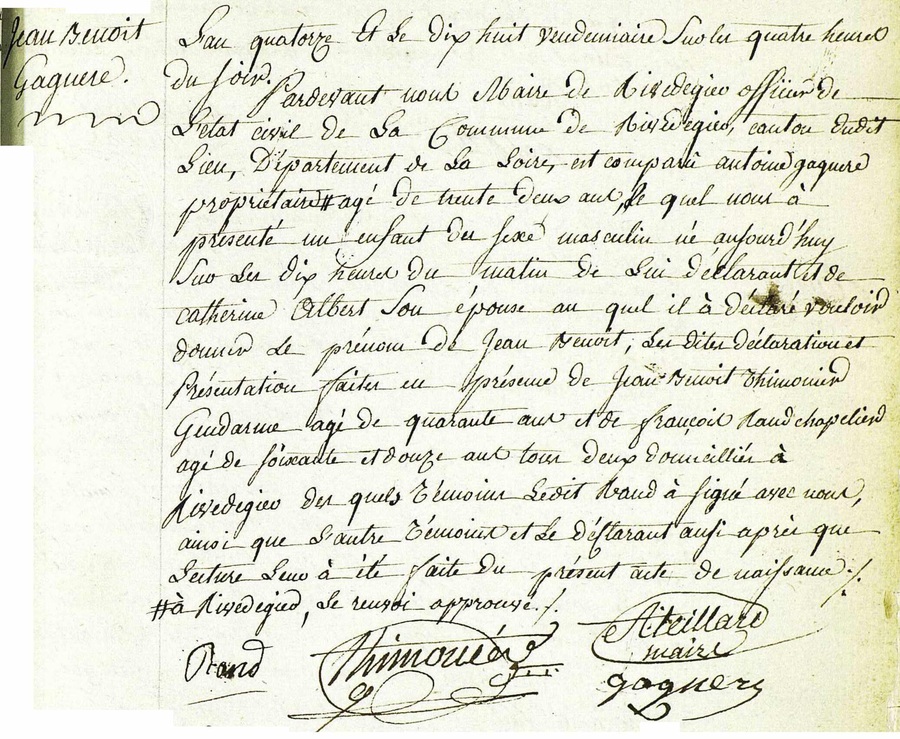 Jean Benoit
Gaguere.
L'an quatorze Et Le dix huit vendemiaire Sur les quatre heures
du soir.
Pardevant nous Maire de Rivedegier officier de
L'état civil de La Commune de Rivedegier, canton dudit
Lieu, Département de La Loire, est comparu antoine gaguere
propriétaire # agé de trente deux ans, le quel nous à
présenté un enfant du sexe masculin né aujourd'huy
Sur Les dix heures du matin de Lui déclarant et de
catherine Albert Son épouse au quel il à déclaré vouloir
donner Le prénom de Jean Benoit; Les dites déclaration et
Présentation faites en présence de Jean Benoit Thimonier
Gendarme agé de quarante ans et de françois Rand chapelier
agé de soixante et douze ans tous deux domicilliés à
Rivedegier des quels Témoins Ledit Rand à signé avec nous,
ainsi que L'autre Témoins et Le déclarant ausi après que
Lecture Leur à été faite du présent acte de naissance ./.
# à Rivedegier, Le renvoi approuvé ./.
Rand Thimonier
maire
gaguere